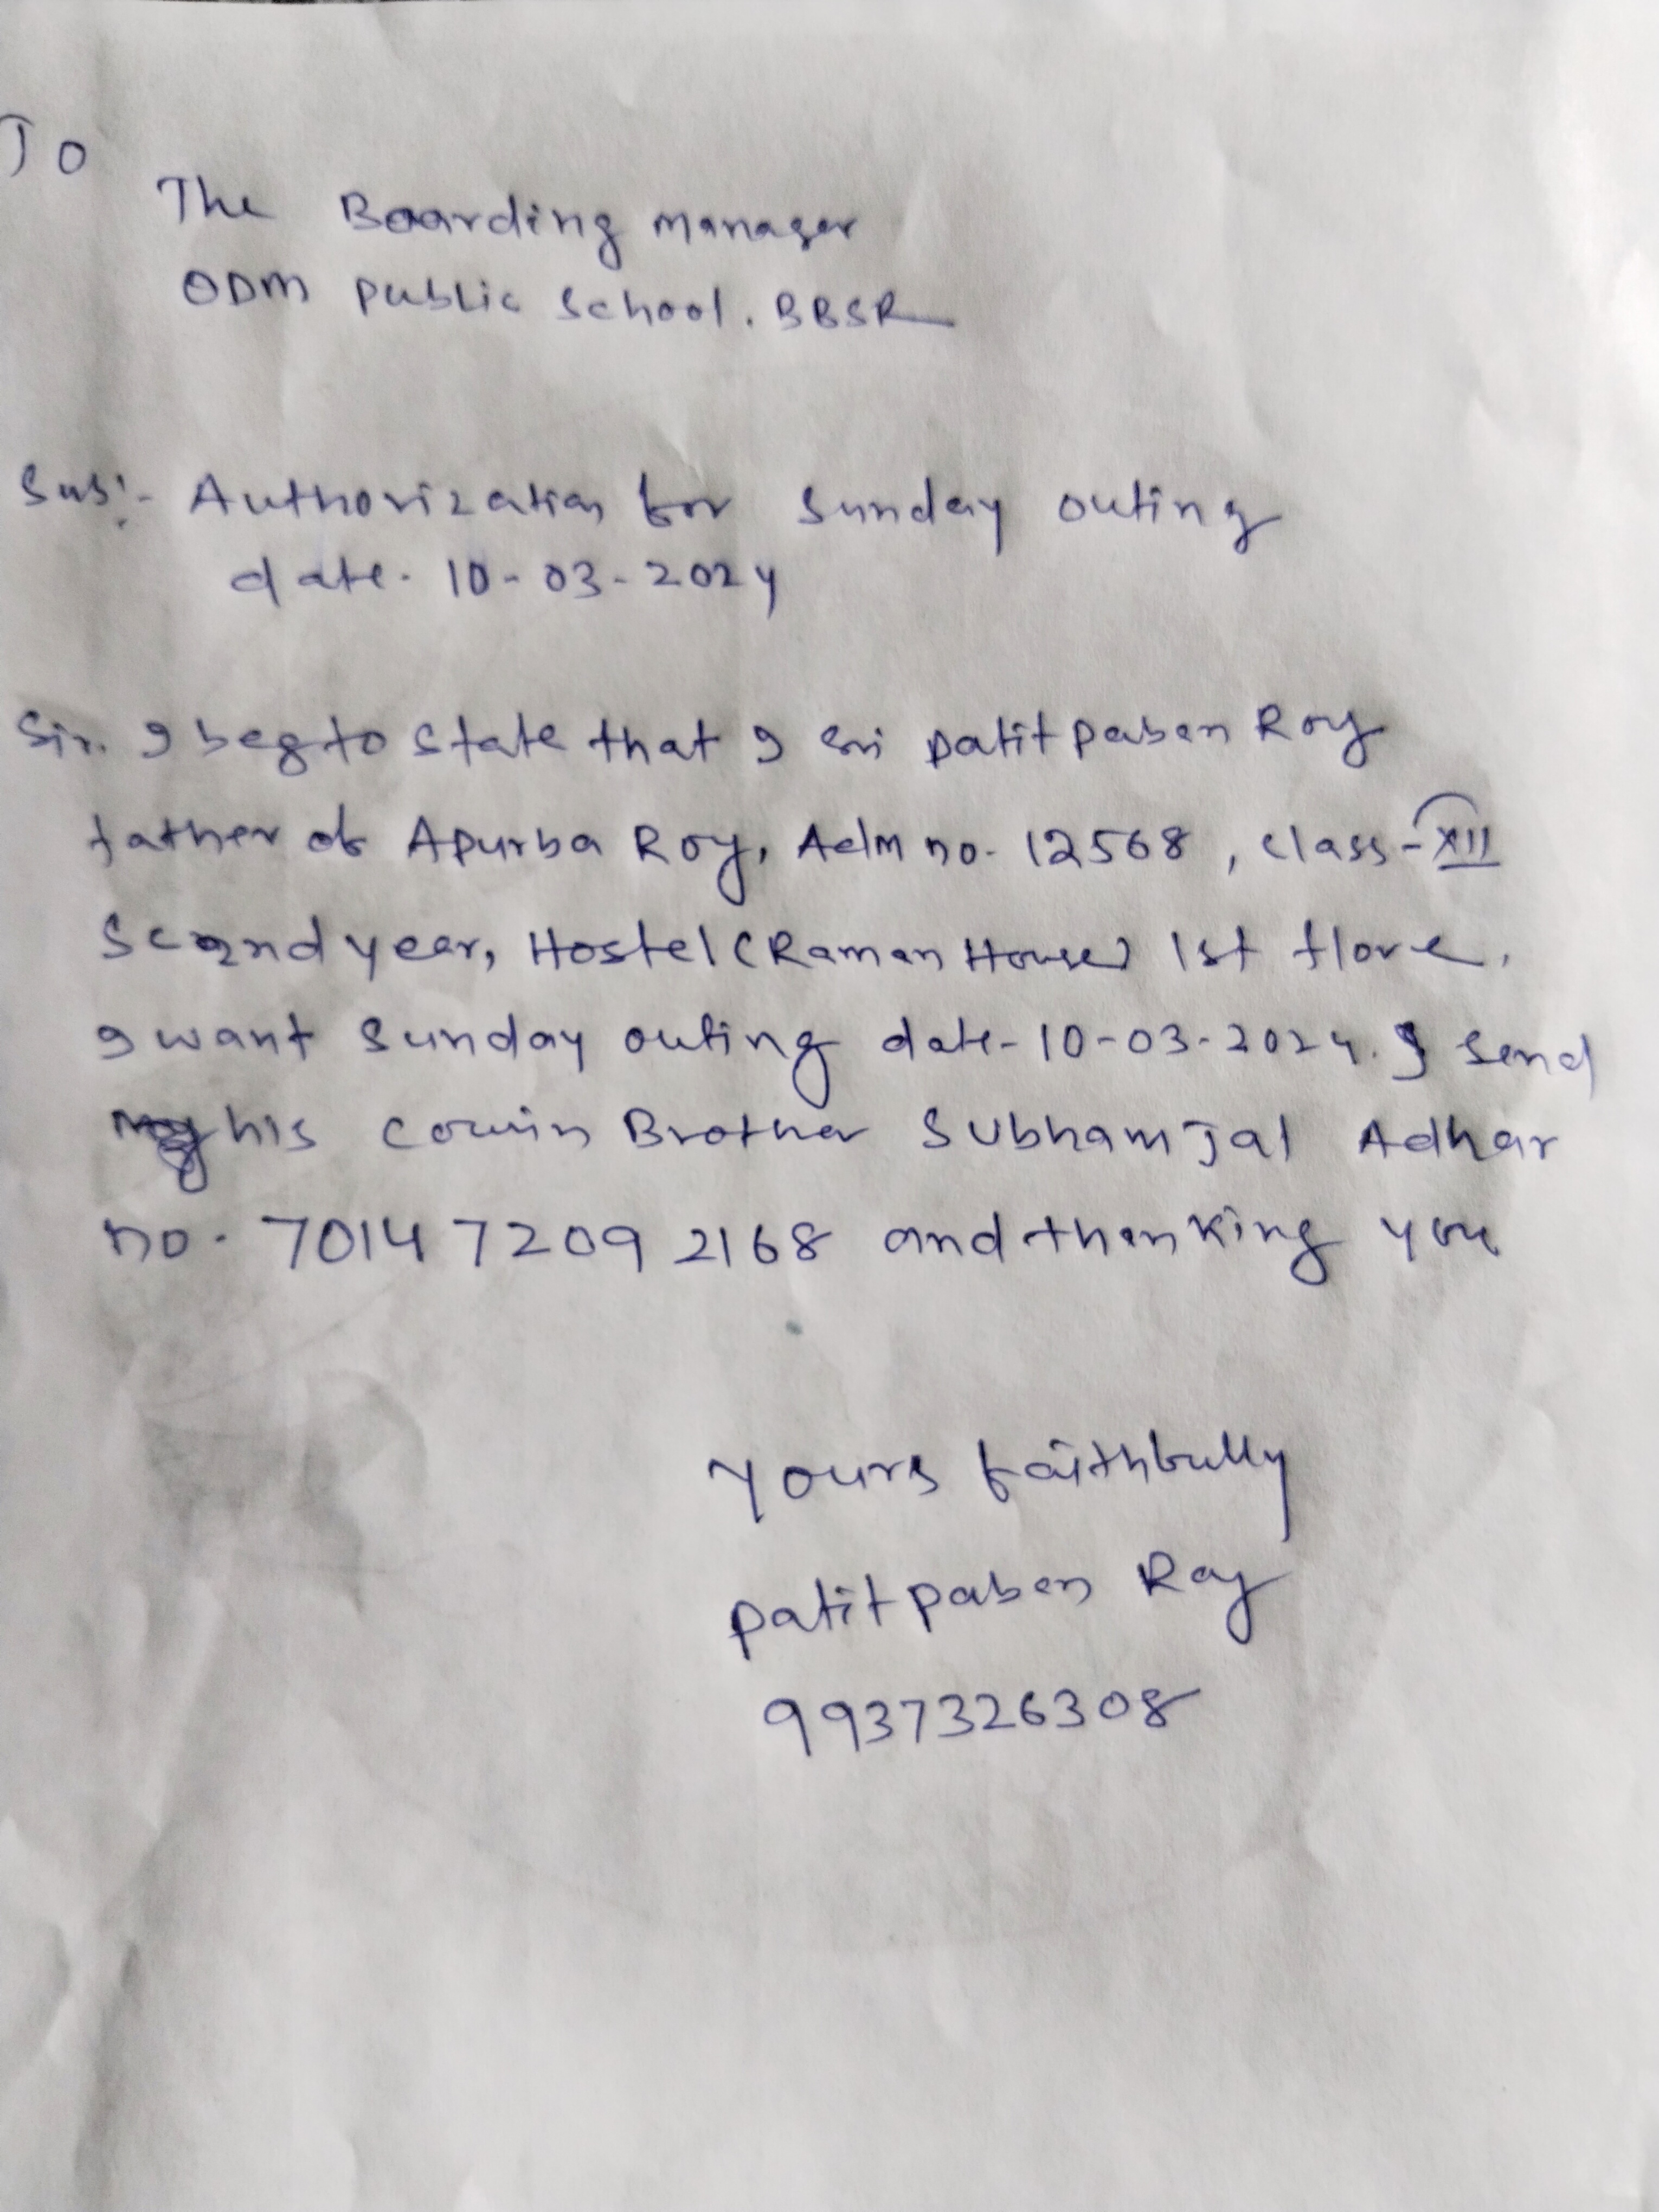 To
The Boarding manager
ODM Public School. BBSR
Sub:- Authorization for Sunday outing
date. 10-03-2024
Sir. I beg to state that I Sri Patitpaban Roy
father of Apurba Roy, Adm no. 12568, class-XII
Second year, Hostel (Raman House) 1st flore.
I want Sunday outing date-10-03-2024. I send
his cousin Brother Subham Jal Adhar
no. 7014 7209 2168 and thanking you
Yours faithfully
Patitpaban Roy
9937326308